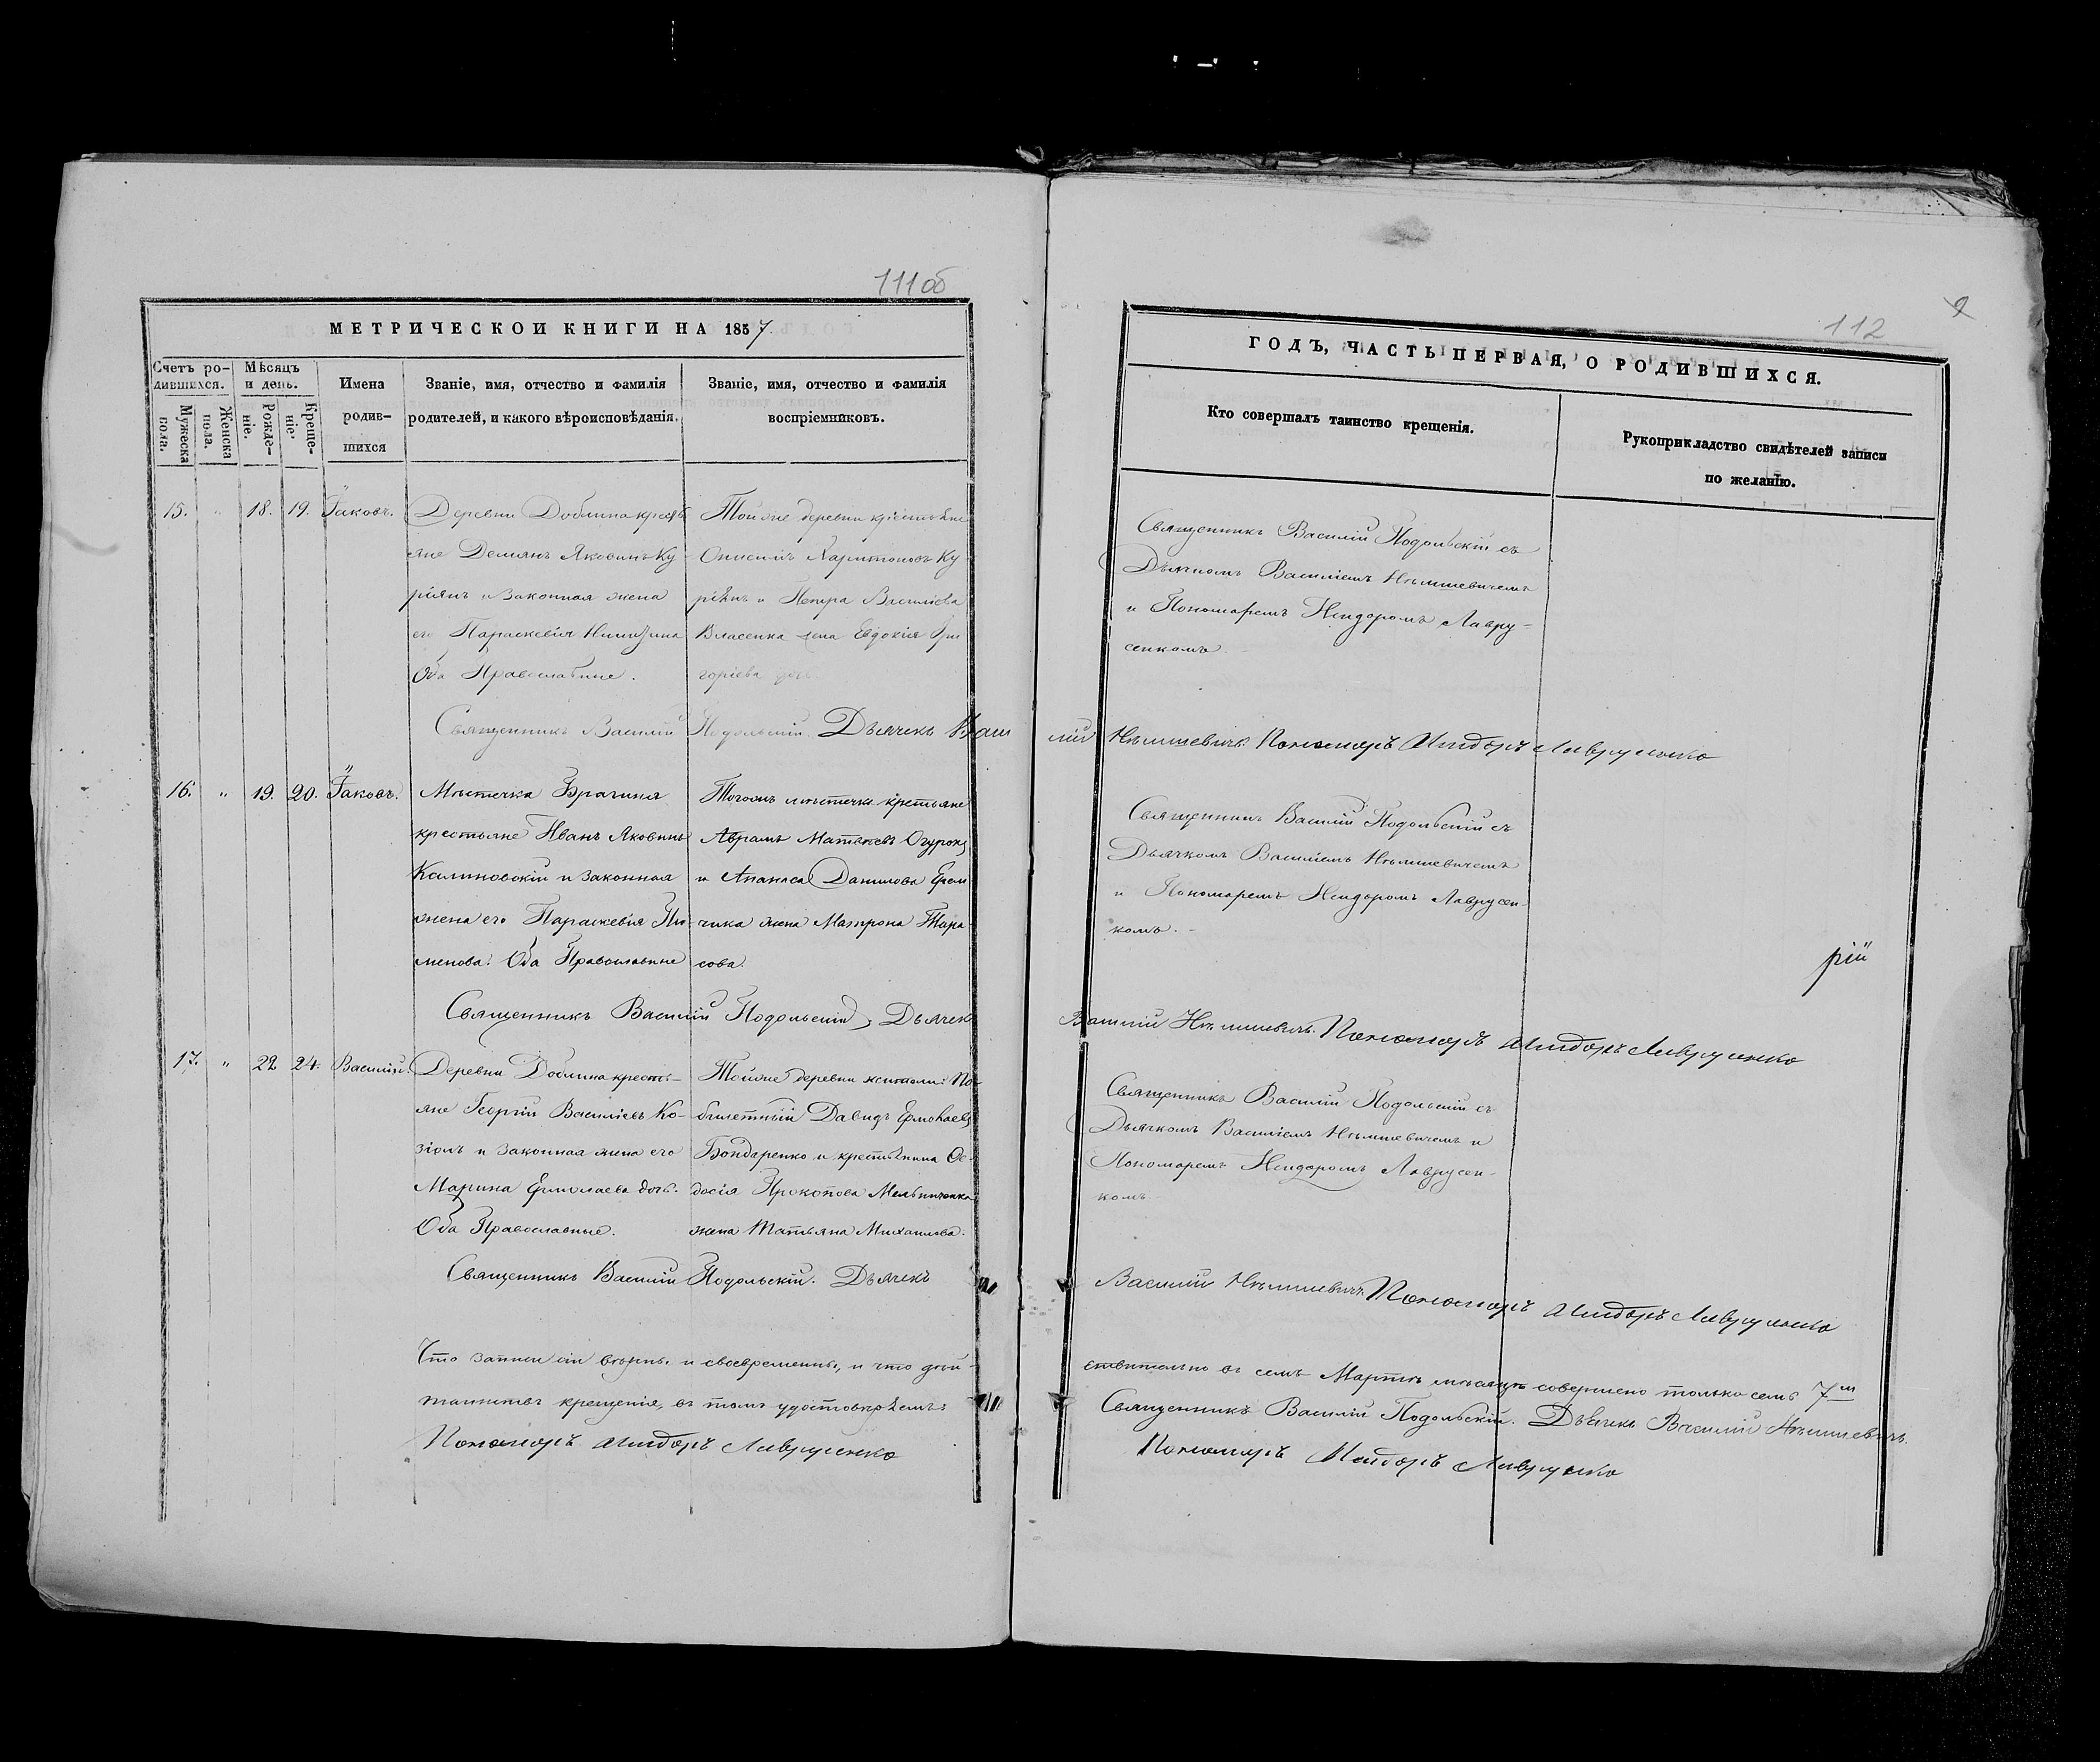 111 об
МЕТРИЧЕСКОИ КНИГИ НА 1857.
Счетъ ро-
дившихся.
Мѣсяцъ
и день.
Мужеска
пола.
Женска
пола.
Рожде-
ніе.
Креще-
ніе.
Имена
родив-
шихся
Званіе, имя, отчество и фамилія
родителей, и какого вѣроисповѣданія.
Званіе, имя, отчество и фамилія
воспріемниковъ.
15. " 18. 19. Іаковъ.
Деревни крестъ
яне Демянъ Яковинъ Ку
ріянъ и законная жена
его Параскевія
Оба Православные.
Тойже деревни крестьяне
Онисимъ Харитоновъ Ку
ріянъ и Петра Василіева
Власенка жена Евдокія Гри
горіева дочь.
Священникъ Василій Подольскій. Дьячекъ Васи
16. " 19. 20. Іаковъ.
Мѣстечка Брагина
крестьяне Иванъ Яковинъ
Калиновскій и законная
жена его Параскевія
менова. Оба Православные
Тогожъ мѣстечка крестьяне
Аврамъ Матвѣевъ Огурокъ
и Данилова
чика жена Матрона Тара
сова.
Священникъ Василій Подольскій, Дьячекъ
17. " 22 24. Василій.
Деревни кресть-
яне Георгій Василіевъ Ко-
зіолъ и законная жена его
Марина Ермолаева дочь.
Оба Православные.
Тойже деревни жители:
билетный Давидъ Ермолаевъ
Бондаренко и крестьянина Ѳе-
досія Прокопова Мельниченка
жена Татьяна Михаилова.
Священникъ Василій Подольскій. Дьячекъ
Что записи сіи вѣрны и своевременны, и что дѣй-
таинствъ крещенія, въ томъ удостовѣряемъ:
Пономарь Исидоръ Лаврусенко
112
ГОДЪ, ЧАСТЬ ПЕРВАЯ, О РОДИВШИХСЯ.
Кто совершалъ таинство крещенія.
Рукоприкладство свидѣтелей записи
по желанію.
Священникъ Василій Подольскій съ
Дьячкомъ Василіемъ Нѣмшевичемъ
и Пономаремъ Исидоромъ Лавру-
сенкомъ.
лій Нѣмшевичъ. Пономарь Исидоръ Лаврусенко
Священникъ Василій Подольскій съ
Дьячкомъ Василіемъ Нѣмшевичемъ
и Пономаремъ Исидоромъ Лаврусен-
комъ.
рій
Василій Нѣмшевичъ. Пономарь Исидоръ Лаврусенко
Священникъ Василій Подольскій съ
Дьячкомъ Василіемъ Нѣмшевичемъ и
Пономаремъ Исидоромъ Лаврусен-
комъ.
Василій Нѣмшевичъ Пономарь Исидоръ Лаврусенко
ствительно въ семъ Мартѣ мѣсяцѣ совершено только семь 7
Священникъ Василій Подольскій. Дьячекъ Василій Нѣмшевичъ.
Пономарь Исидоръ Лаврусенко